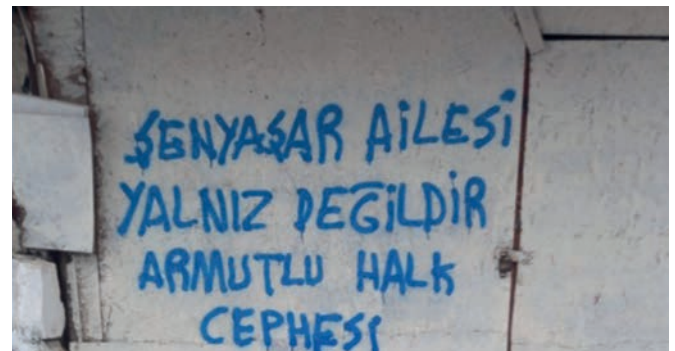 ŞENYAŞAR AİLESİ
YALNIZ DEĞİLDİR
ARMUTLU HALK
CEPHESI